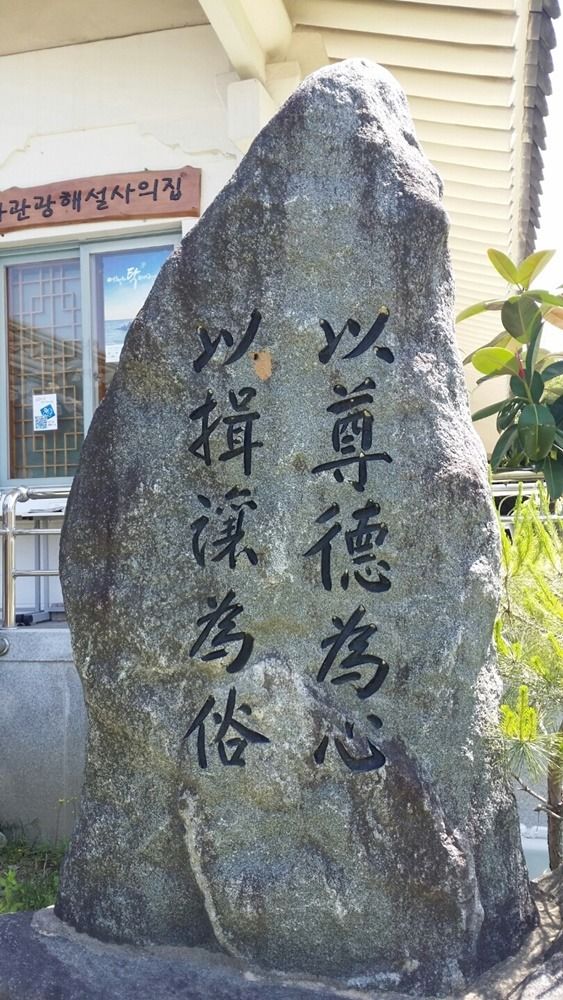 以尊德為心
以揖讓為俗
관광해설사의집